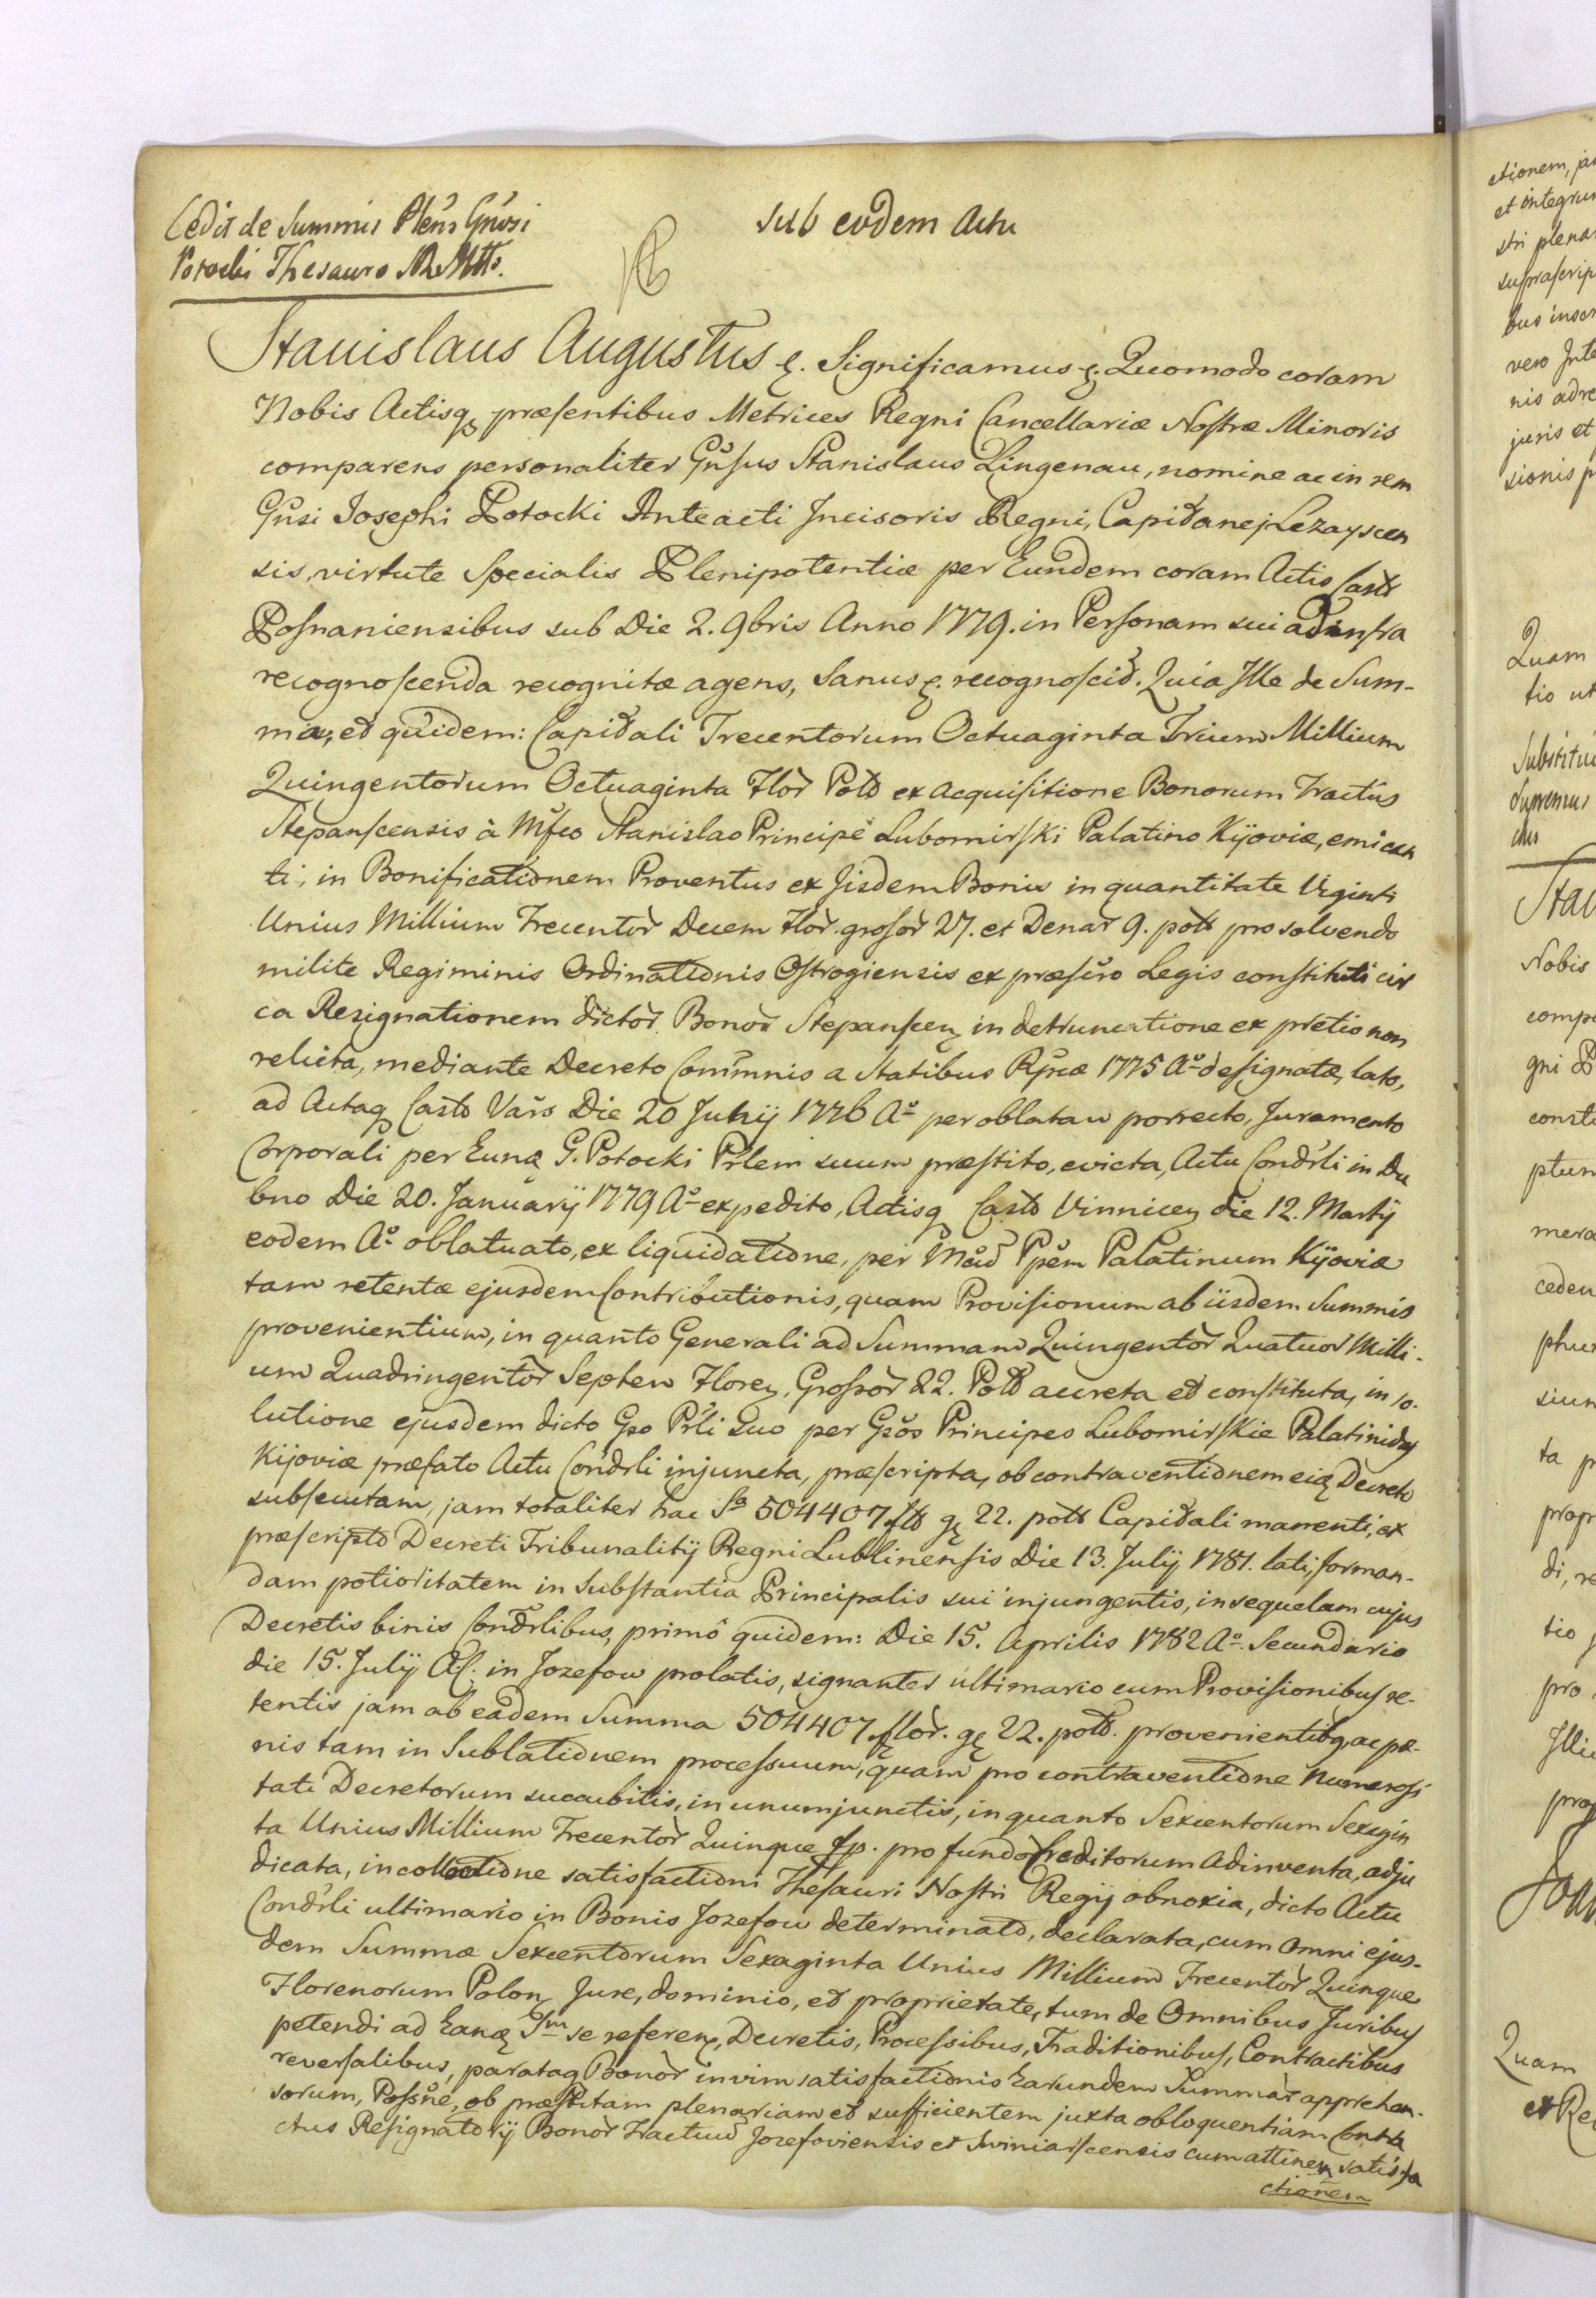 Cedit de Summis Plen̄s Gn̄rosi
Potocki Thesauro
sub eodem Actu
Stanislaus Augustus &. Significamus &. Quomodo coram
Nobis Actisq præsentibus Metrices Regni Cancellariæ Nostræ Minoris
comparens personaliter Gn̄sus Stanislaus Lingenau, nomine ac in rem
Gn̄si Josephi Potocki Anteacti Jncisoris Regni, Capitanej Lezayscen
sis, virtute Specialis Plenipotentiæ per Eundem coram Actis Castr
Posnaniensibus sub Die 2. 9bris Anno 1779. in Personam sui ad infra
recognoscenda recognitæ agens, Sanus &. recognoscit. Quia Jlle de Sum-
mia, et quidem: Capitali Trecentorum Octuaginta Trium Millium
Quingentorum Octuaginta Flor Pold ex Acquisitione Bonorum Tractus
Stepanscensis à Mfco Stanislao Principe Lubomirski Palatino Kijoviæ, emican
ti, in Bonificationem Proventus ex Jisdem Bonis in quantitate Viginti
Unius Millium Trecentor Decem Flor. grosor 27. et Denar 9. polt pro solvendo
milite Regiminis Ordinationis Ostrogiensis ex præscro Legis constituti cir
ca Resignationem dictor Bonor Stepanscen in detruncatione ex pretio non
relicta, mediante Decreto Comīnnis a Statibus Rp̄cæ 1775 Aō designatæ, lato,
ad Actaq Castr Vars Die 20 Julij 1776 Aō per oblatam porrecto, Juramento
Corporali per Eunq G. Potocki Pr̄lem suum præstito, evicta, Actu Cond̄rli in Du
bno Die 20. Januarij 1779 Aō expedito, Actisq Castr Vinnicen die 12. Martij
eodem Aō oblatuato, ex liquidatione, per Mcūd Pp̄em Palatinum Kijoviæ
tam retentæ ejusdem Contributionis, quam Provisionum ab iisdem Summis
provenientium, in quanto Generali ad Summam Quingentor Quatuor Milli-
um Quadringentor Septem Floren, Grossor 22. Pold accreta et constituta, in so-
lutione ejusdem dicto Gso Pr̄li suo per Gsōs Principes Lubomirskie Palatinidas
Kijoviæ præfato Actu Cond̄rli injuncta, præscripta, ob contraventionem eiq Decreto
subsecutam, jam totaliter hac Sa 504407 fld gr 22. polt Capitali manenti, ex
præscripto Decreti Tribunalitij Regni Lublinensis Die 13. Julij 1781. lati, forman-
dam potioritatem in Substantia Principalis sui injungentis, in sequelam cujus
Decretis binis Cond̄rlibus, primô quidem: Die 15. Aprilis 1782 Aō. Secundario
die 15. Julij A.C. in Jozefow prolatis, signanter ultimario cum Provisionibus re-
tentis jam ab eadem Summa 504407. flor. gr 22. pold. provenientibq, ac pæ-
nis tam in Sublationem processuum, quam pro contraventione numerosi
tati Decretorum succubitis, in unum junctis, in quanto Sexcentorum Sexagin
ta Unius Millium Trecentor Quinque fp. pro fundo Creditorum adinventa, adju
dicata, in collocatione satisfactioni Thesauri Nostri Regij obnoxia, dicto Actu
Cond̄rli ultimario in Bonis Jozefow determinato, declarata, cum omni ejus-
dem Summæ Sexcentorum Sexaginta Unius Millium Trecentor Quinque
Florenorum Polon Jure, dominio, et proprietate, tum de Omnibus Juribus
petendi ad Eanq Sm̄ se referen, Decretis, Processibus, Traditionibus, Contractibus
reversalibus, parataq Bonor in vim satisfactionis Earundem Summar apprehen-
sorum, Possn̄e, ob præstitam plenariam et sufficientem juxta obloquentiam Contra
ctus Resignatorij Bonor Tractuum Jozefoviensis et Swiniarscensis cum attinen satisfa
ctionem
ctionem, ja
et integrum
stri plena
suprascrip
bus inscr
vero Jnte
nis adre
juris et
sionis p
Quam
tio ut
Substitui
Supremus
Stan
Nobis
compa
gni P
consti
ptum
mera
ceden
phum
sium
ta p
propr
di, re
tio
pro
Jlli
prop
Quam
et Re